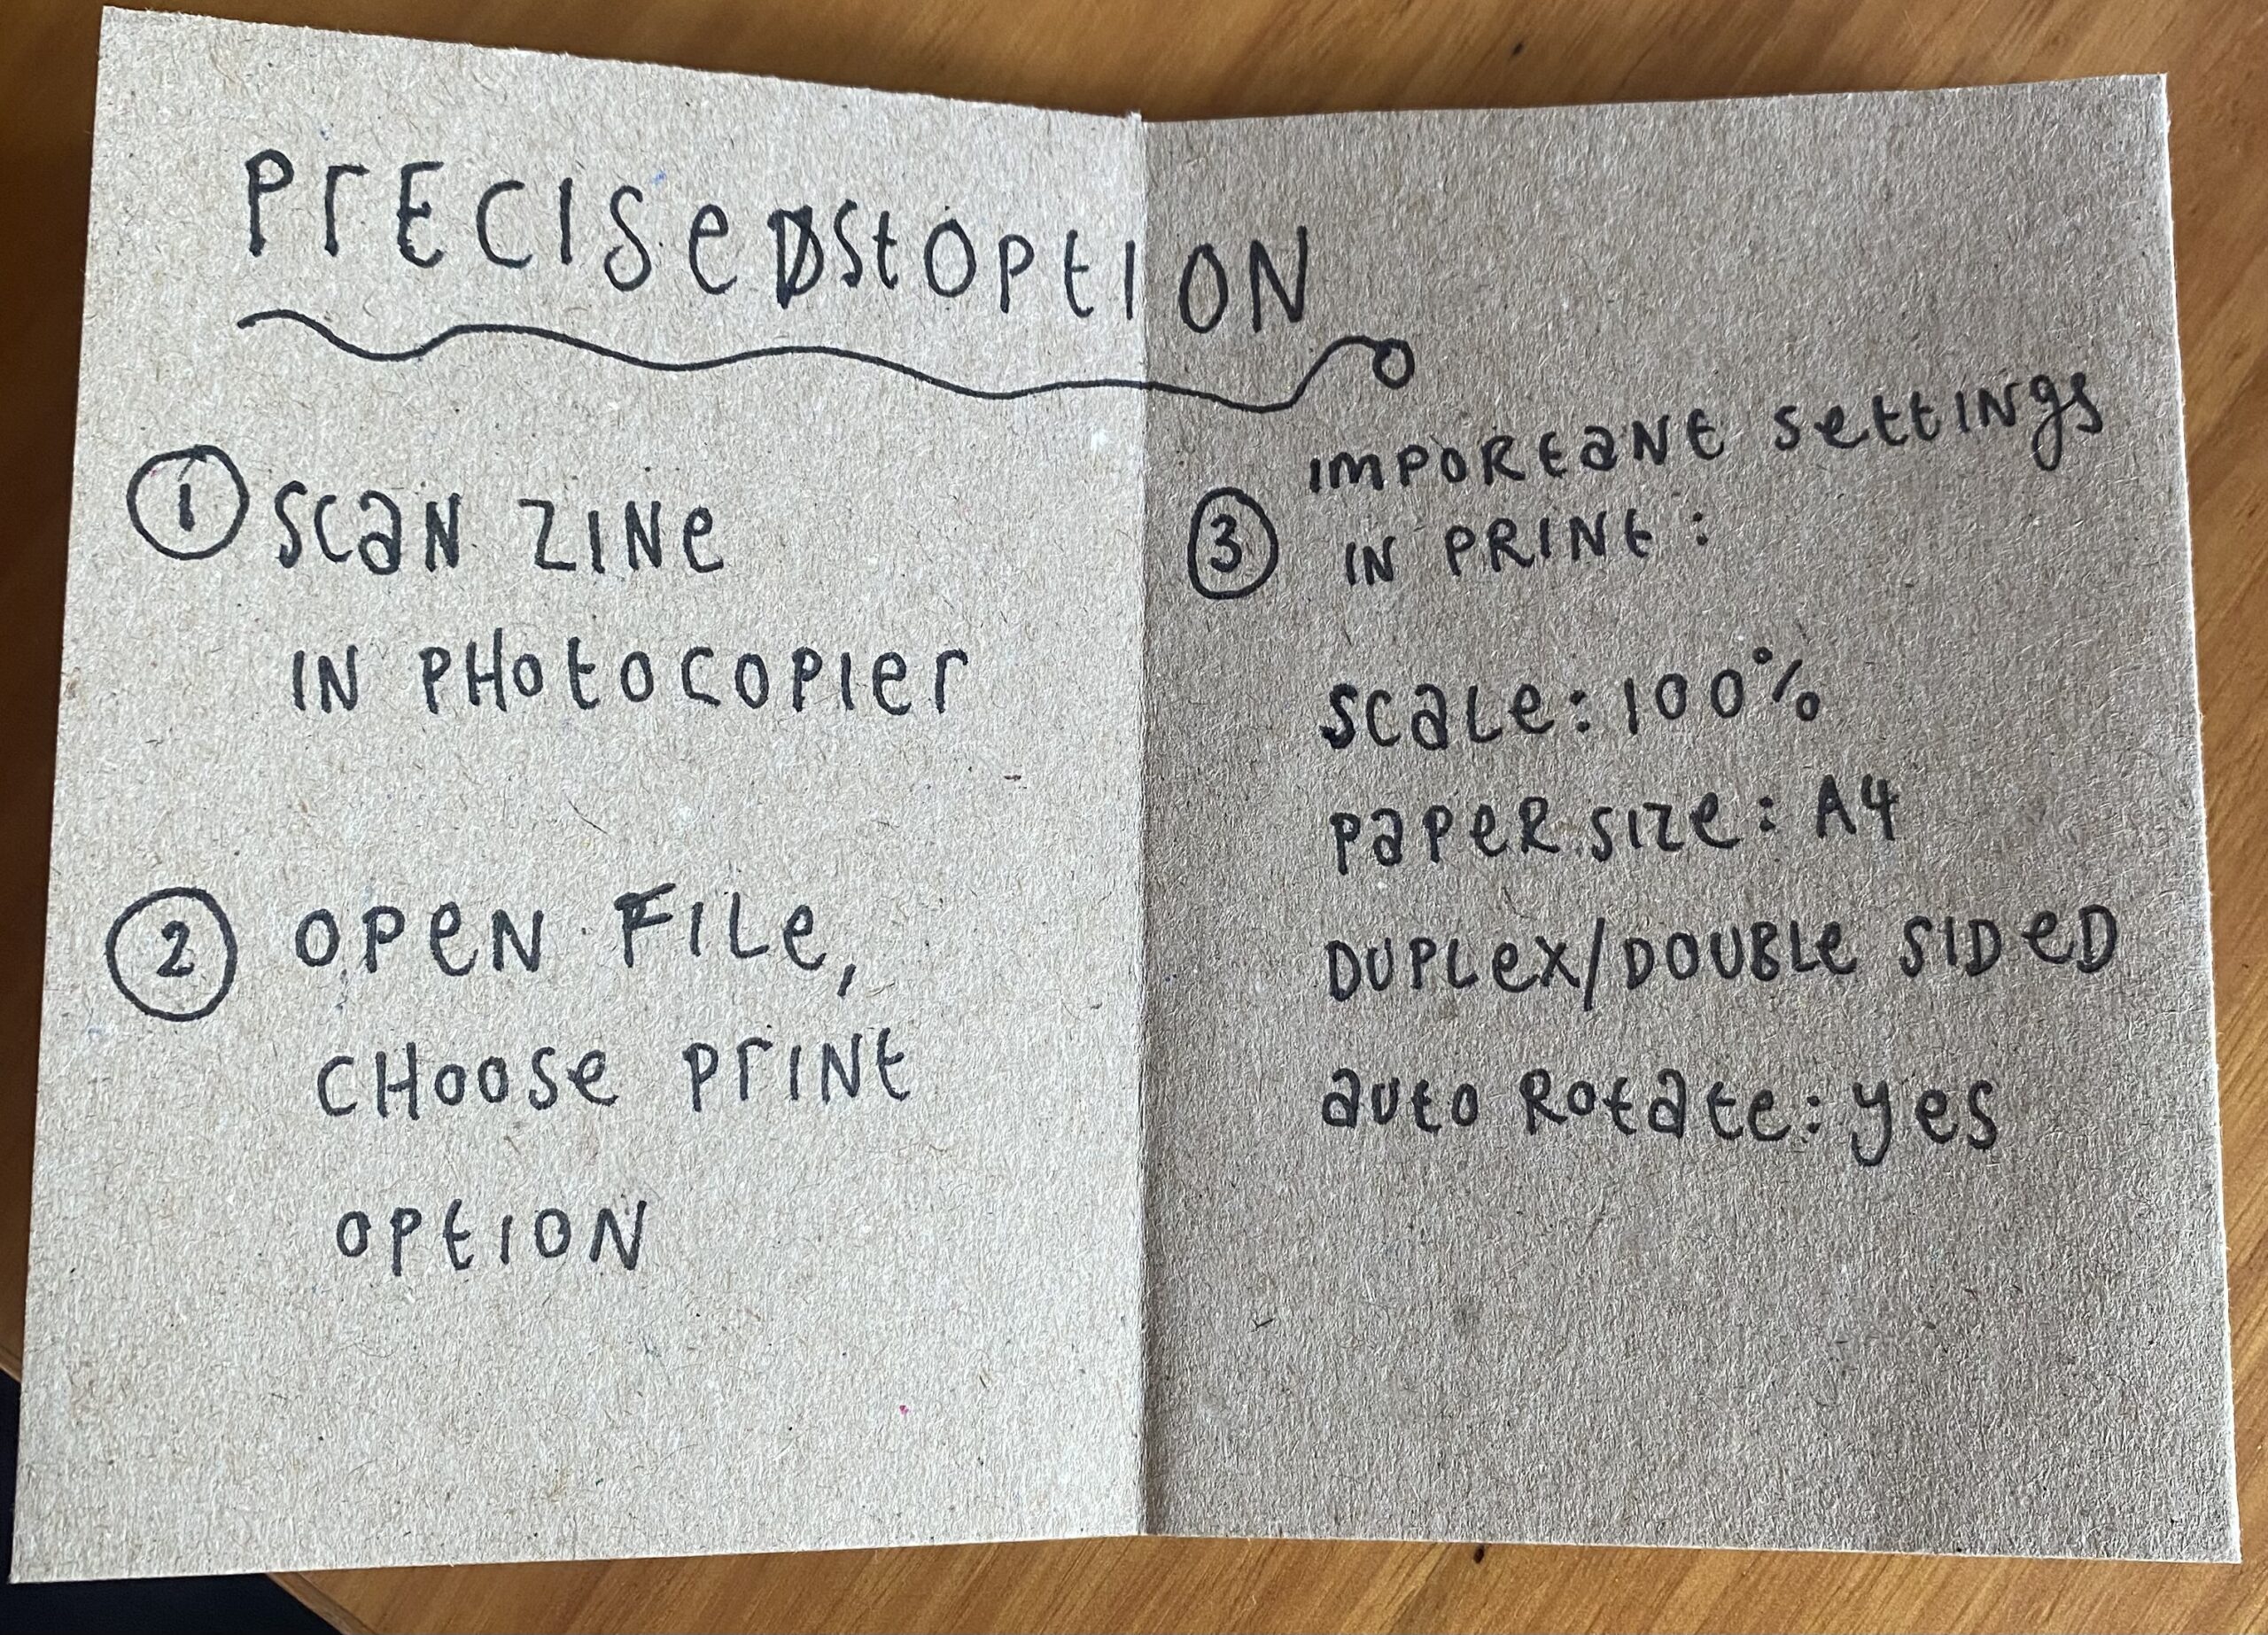 PrECISe DSt OPtION
1 SCaN ZINe
IN PHotocoPIer
2 OPeN FILe,
CHoose PrINt
OPtION
IMPORtaNt settINgs
3 IN PRINt:
scaLe: 100%
PaPeR SIZe: A4
DUPLex/DOUBLe SIDeD
auto Rotate: yes